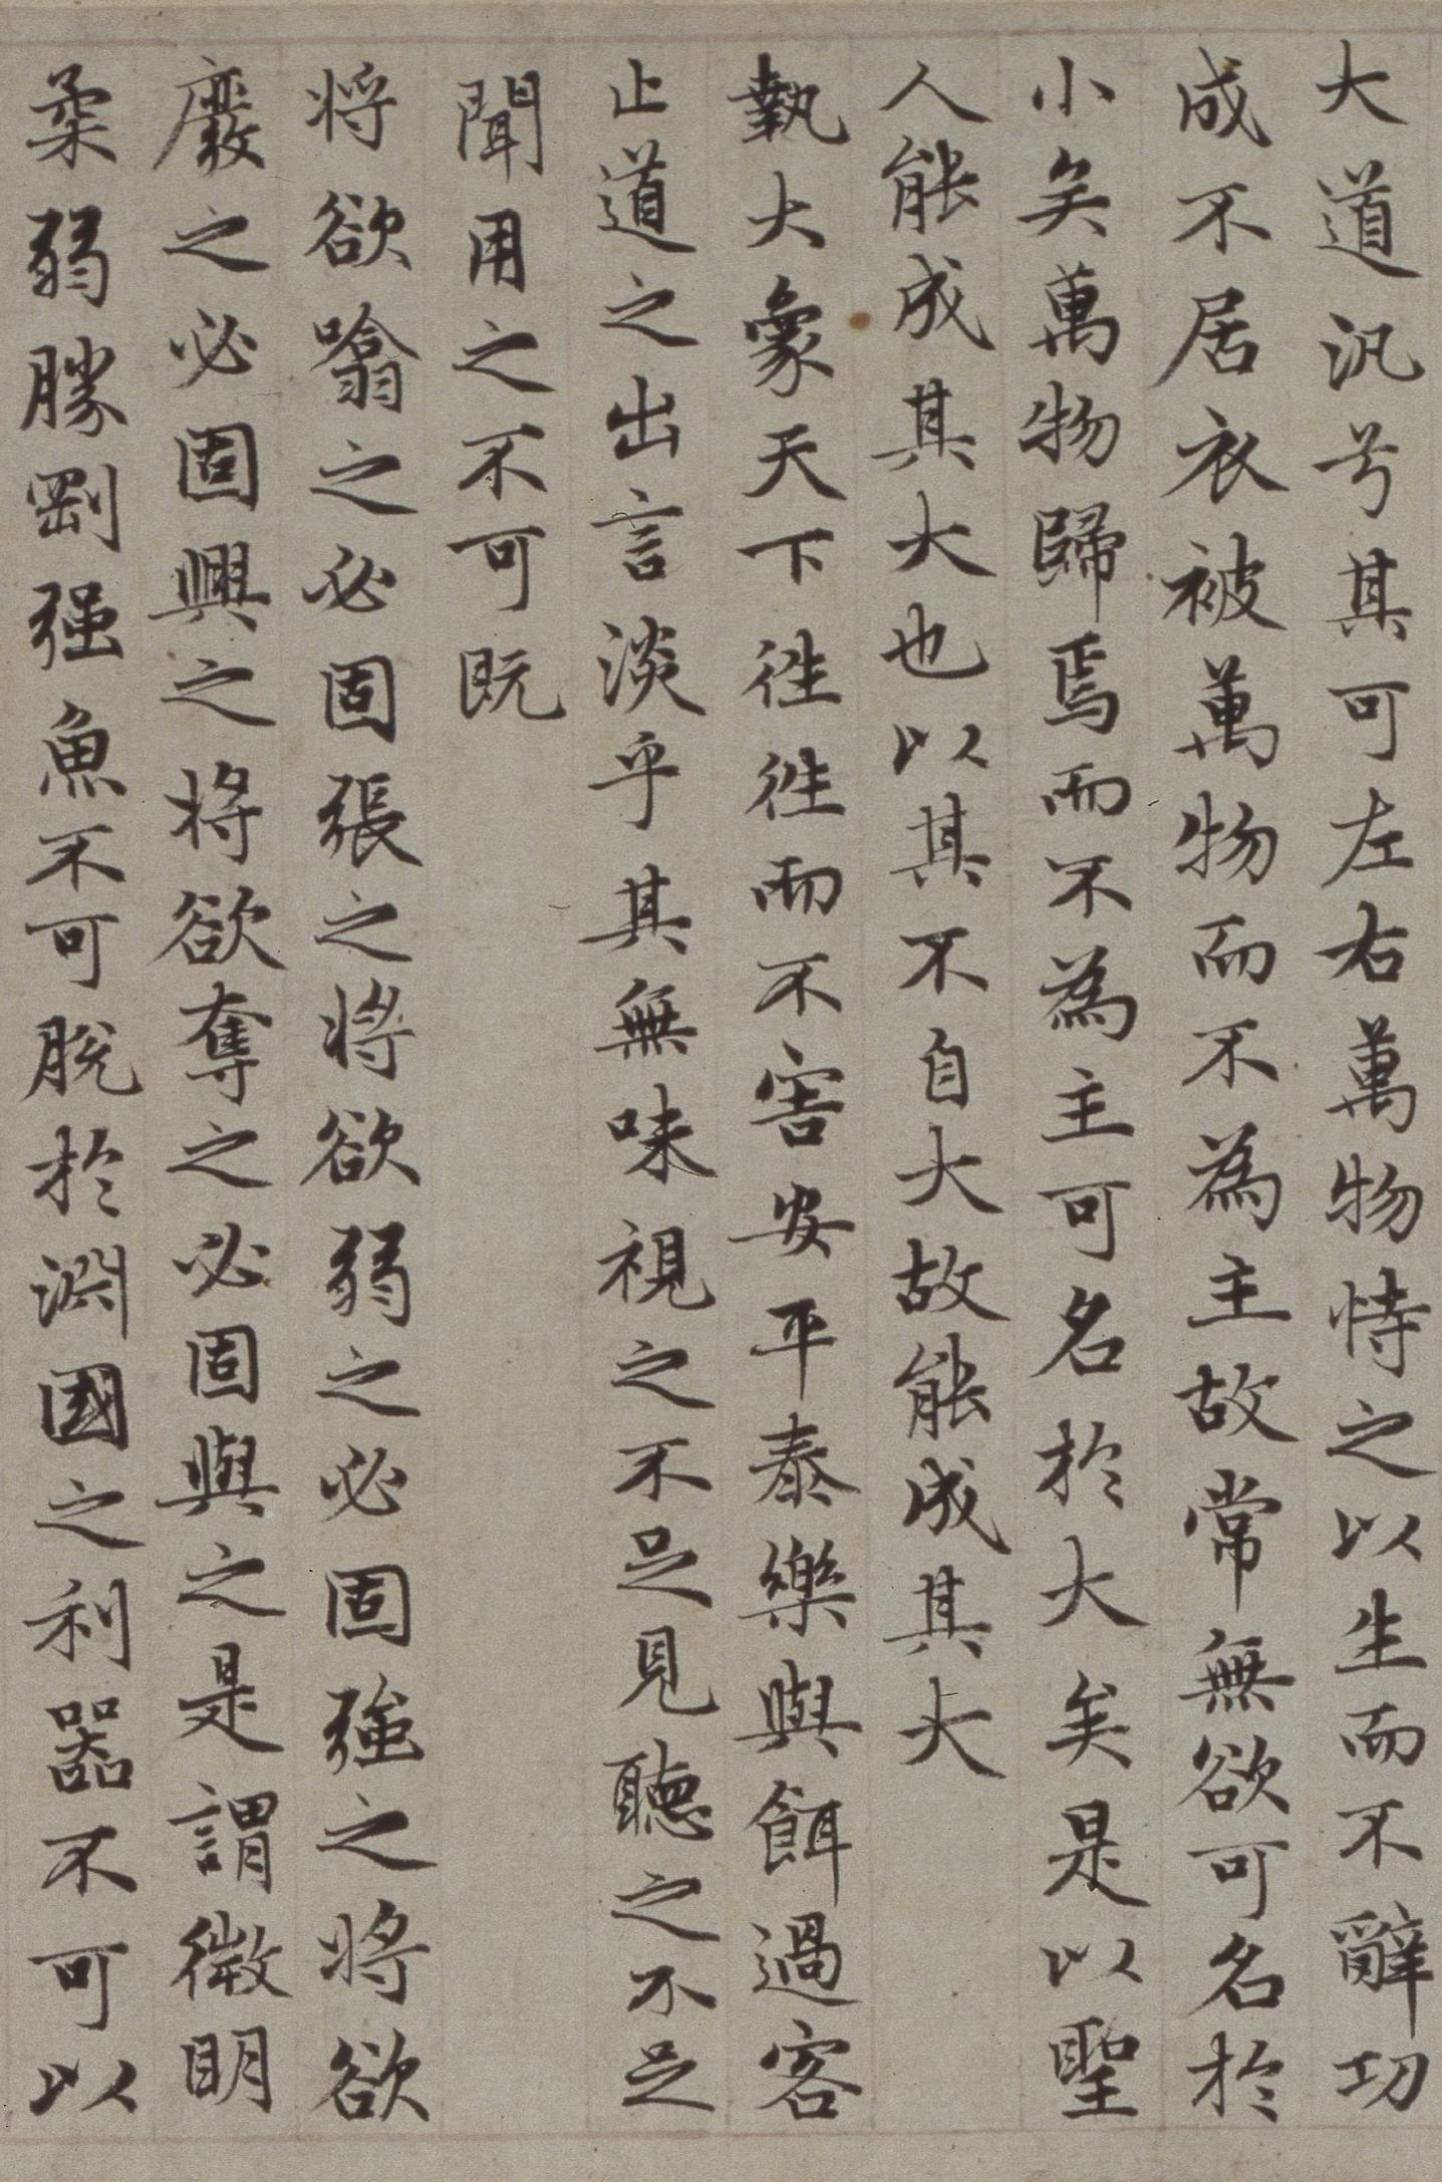 大道汎兮其可左右萬物恃之以生而不辭功
成不居衣被萬物而不為主故常無欲可名於
小矣萬物歸焉而不為主可名於大矣是以聖
人能成其大也以其不自大故能成其大
執大象天下往往而不害安平泰樂與餌過客
止道之出言淡乎其無味視之不足見聽之不足
聞用之不可既
將欲噏之必固張之將欲弱之必固強之將欲
廢之必固興之將欲奪之必固與之是謂微明
柔弱勝剛强魚不可脫於淵國之利器不可以